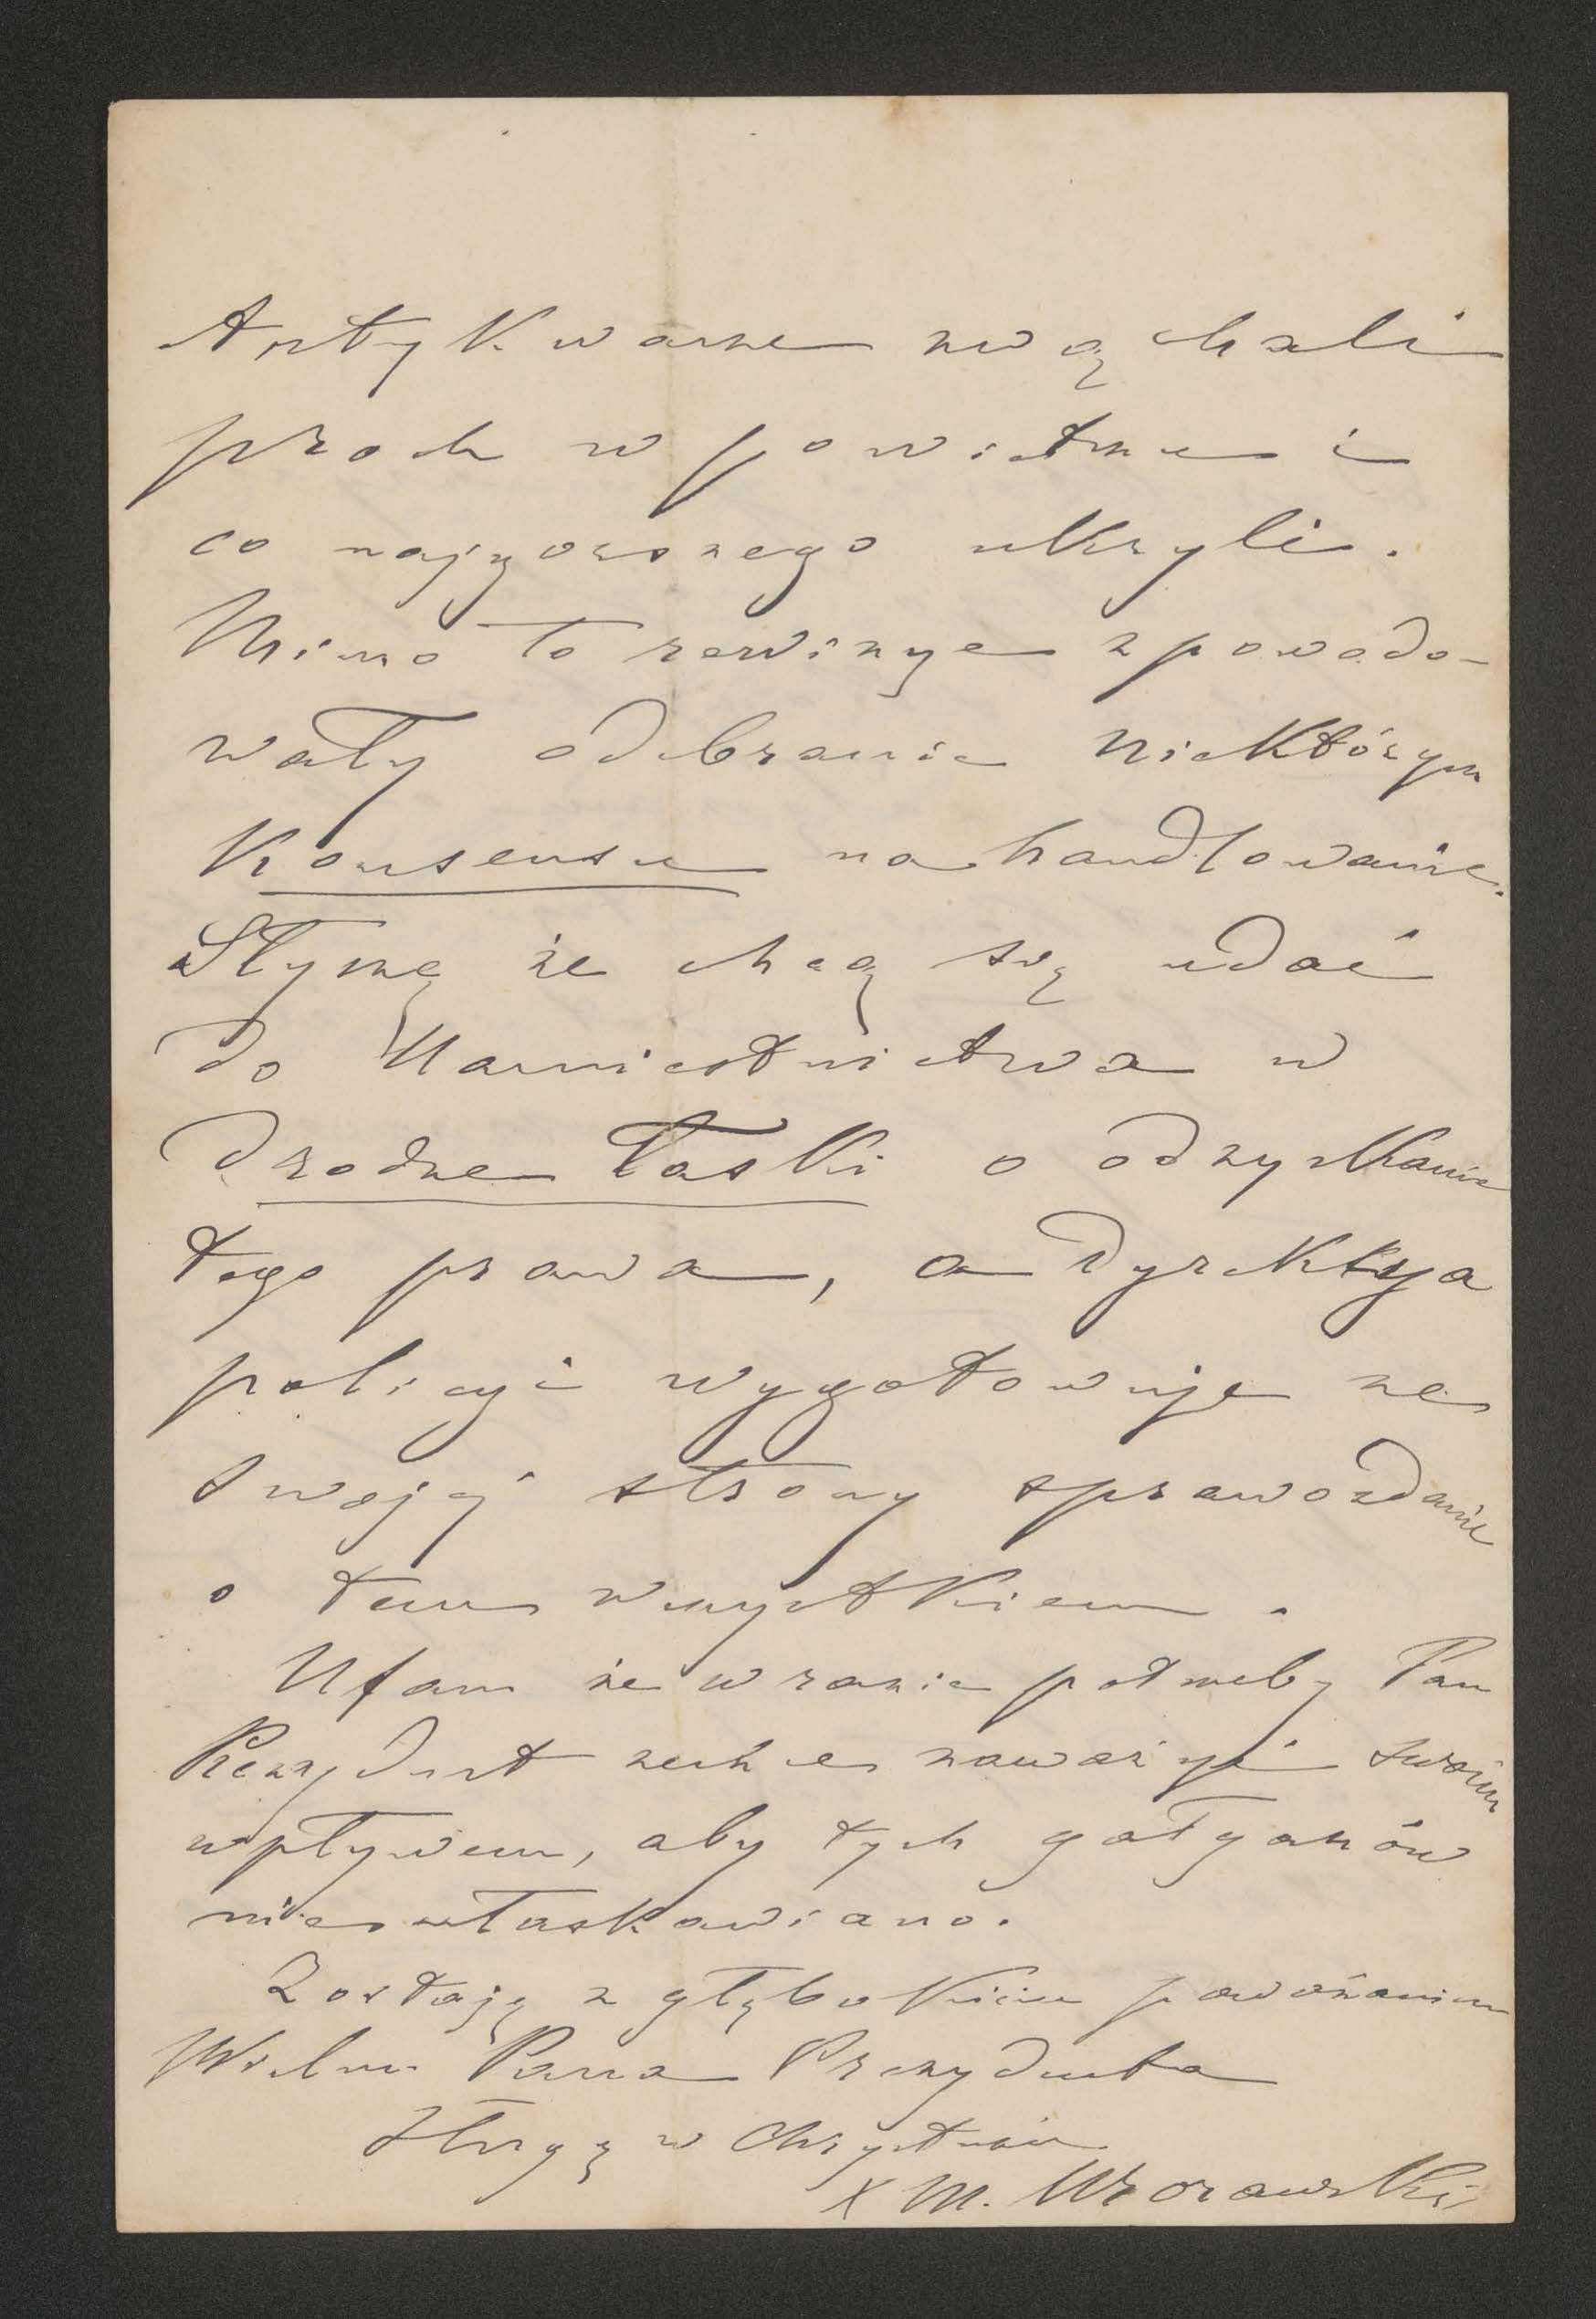 Antykwarze zwąchali
proch w powietrzu i
co najgorszego ukryli.
Mimo to rewizye spowodo-
wały odebranie niektórym
Konsensu na handlowanie.
Słyszę że chcą się udać
do Namiestnictwa w
drodze łaski o odzyskanie
tego prawa, a Dyrekcya
policyi wygotowuje ze
swojej strony sprawozdanie
o tem wszystkiem.
Ufam że w razie potrzeby Pan
Prezydent zechce zaważyć swoim
wpływem, aby tych gałganów
nie ułaskawiano.
Zostaję z głębokiem poważaniem
Wielm. Pana Prezydenta
Sługą w Chrystusie
X M. Morawski